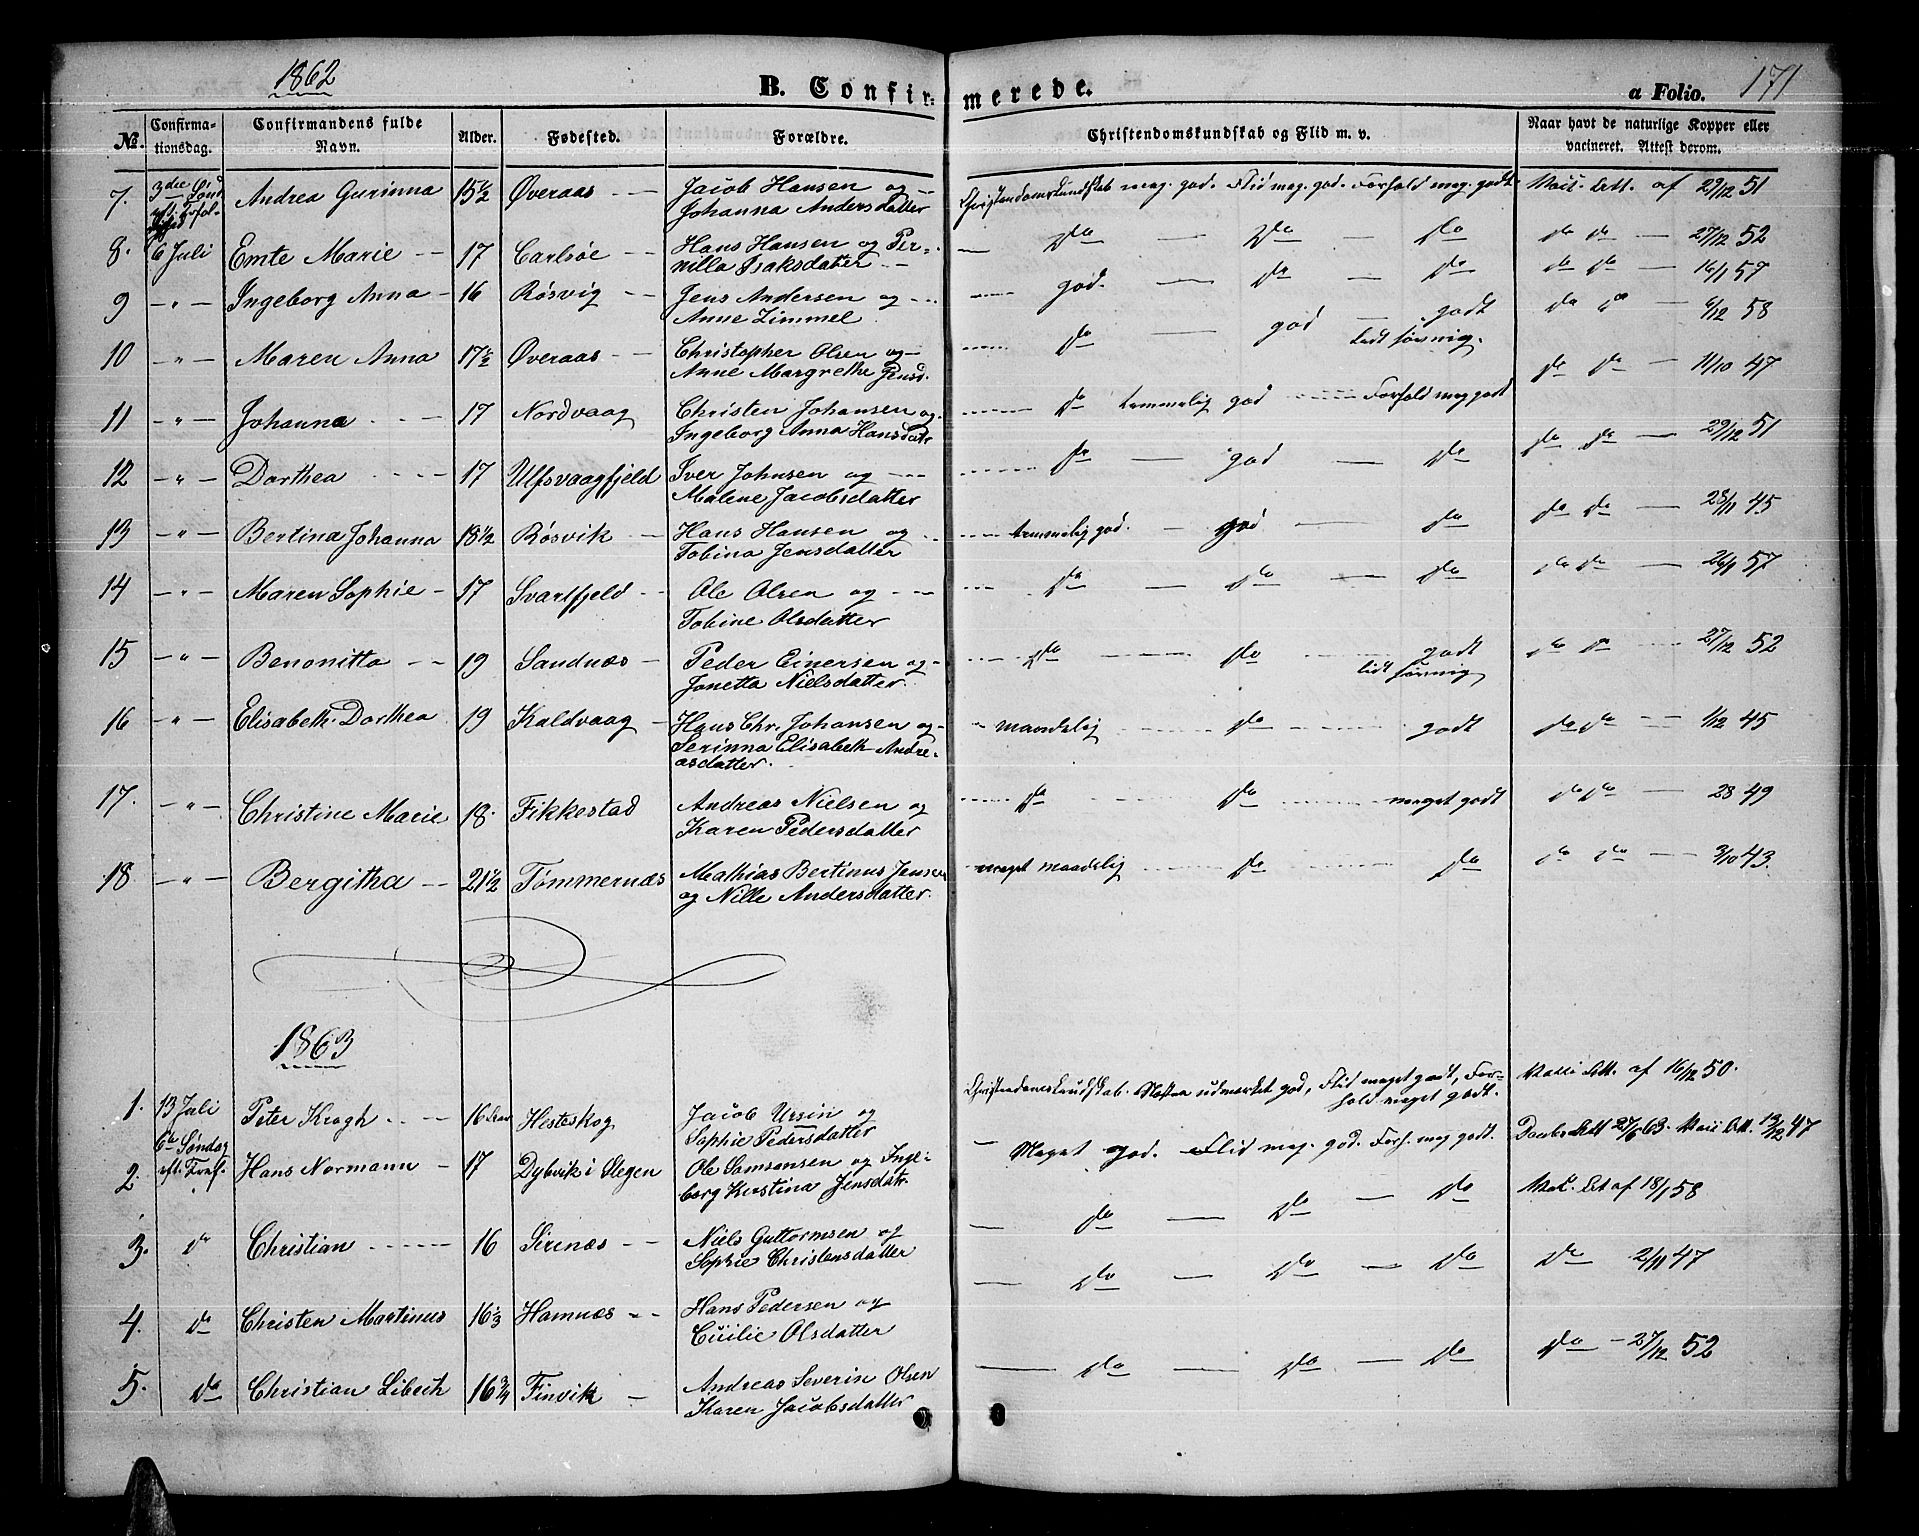 1862
B. Confirmerede.
a Folio. 171
No. Confirmationsdag. Confirmandens fulde Navn. Alder. Fødested. Forældre. Christendomskundskab og Flid m. v. Naar havt de naturlige Kopper eller vacineret. Attest derom.
7. 3die Andrea Gurinna 15½ Øveraas Jacob Hansen og Johanna Andersdatter Christendomskundskab meg. god. Flid meg. god. Forhold meg. godt. Att. af 29/12 51
8. 6 Juli Emte Marie 17 Carlsøe Hans Hansen og Pernilla Isaksdatter Do Do Do do do 27/12 52
9 " Ingeborg Anna 16 Røsvig Jens Andersen og Anne Zimmel god. do do do do 16/1 57
10 " Maren Anna 17½ Øveraas Christopher Olsen og Anne Margrethe Jensd. do god godt lidt do do 6/12 58
11 " Johanna 17 Nordvaag Christen Johansen og Ingeborg Anna Hansdatr do temmelig god Forhold meg godt do do 11/10 47
12 " Dorthea 17 Ulfsvaagfjeld Iver Johnsen og Malene Jacobsdatter do god do do do 29/12 51
13 " Bertina Johanna 18½ Røsvik Hans Hansen og Tobina Jensdatter temmelig god. god do do do 28/11 45
14 " Maren Sophie 17 Svartfjeld Ole Olsen og Tobine Olsdatter do do do do do 26/1 57
15 " Benonitta 19 Sandnæs Peder Einersen og Jonetta Nielsdatter. do do godt lidt do do 27/12 52
16 " Elisabeth Dorthea 19 Kaldvaag Hans Chr. Johansen og Serinna Elisabeth Andreasdatter. maadelig do godt do do 1/12 45
17. " Christine Marie 18. Fikkestad Andreas Nielsen og Karen Pedersdatter do do meget godt do do 28 49
18 " Bergitha 21½ Tømmernæs Mathias Bertinus Jensen og Nille Andersdatter. meget maadelig do do do do 3/10 43.
1863
1. 13 Juli Peter Kragh 16 Hesteskog Jacob Ursin og Sophie Pedersdatter Christendomskundskab. Næsten udmærket god, Flid meget godt, Forhold meget godt. Att. af 16/12 50.
2. 6te Søndag eft. Tref. Hans Normann 17 Dybvik i Stegen Ole Samsonsen og Ingeborg Kerstina Jensdatr. Meget god. Flid meg. god. Forh. meg godt. Daabsatt 27/6 63. Att. 13/12 47
3. do Christian 16 Sirenæs Niels Guttormsen og Sophie Christensdatter do do do af 18/1 58
4. do Christen Martinus 16⅓ Hamnæs Hans Pedersen og Cicilie Olsdatter do do do do 2/11 47
5. do Christian Libech 16¾ Finvik Andreas Severin Olsen Karen Jacobsdatter do do do do 27/12 52